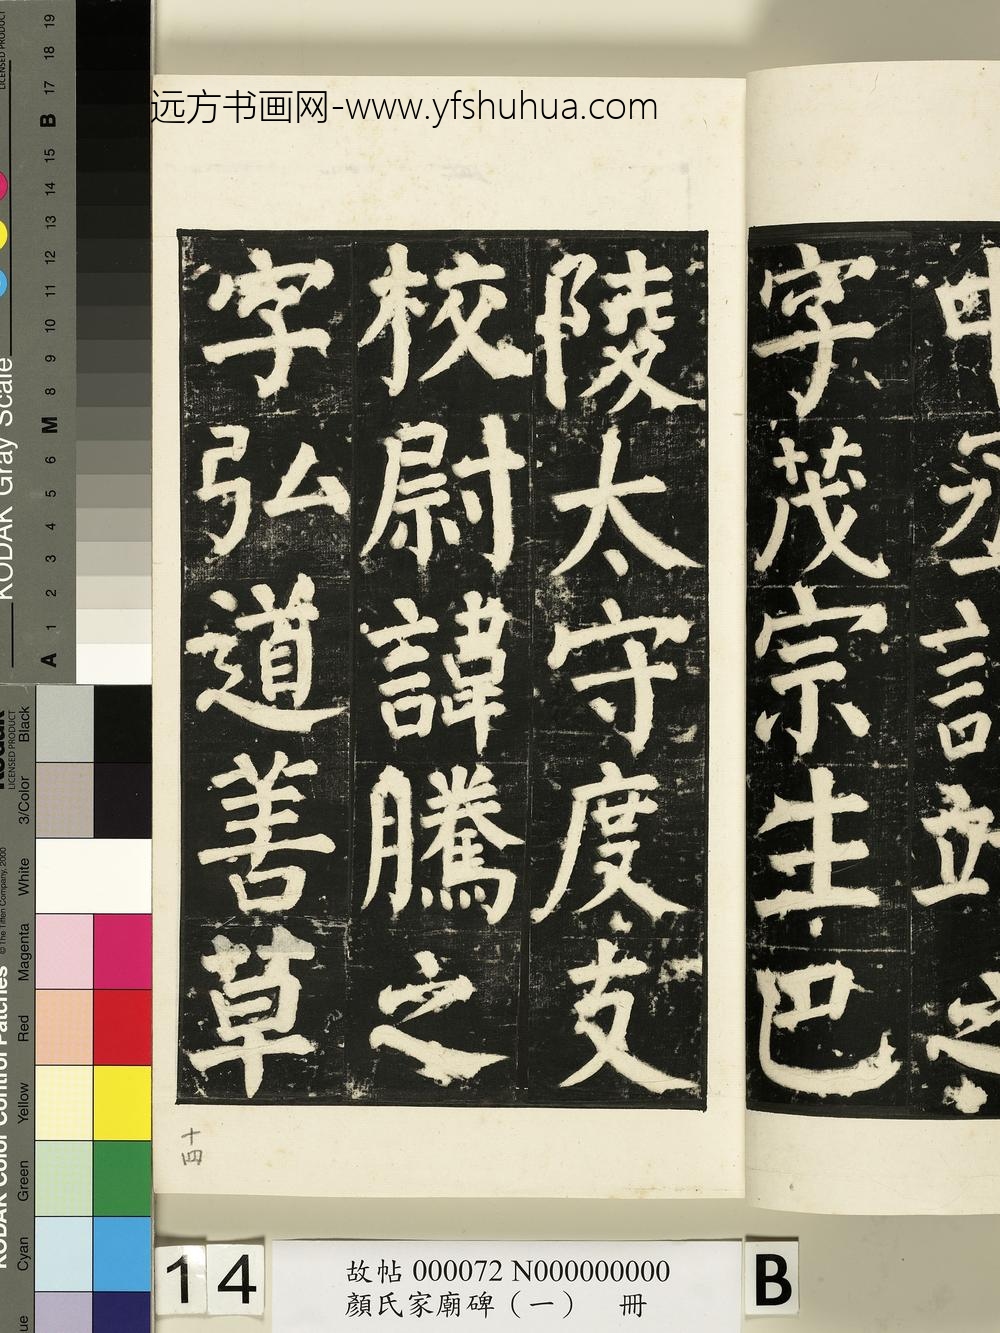 远方书画网-www.yfshuhua.com
字茂宗生巴
陵太守度支
校尉諱騰之
字弘道善草
十四
14
故帖 000072 N000000000
顏氏家廟碑（一） 冊
B
KODAK Gray Scale
LICENSED PRODUCT
A 1 2 3 4 5 6 M 8 9 10 11 12 13 14 15 B 17 18 19
KODAK Color Control Patches
LICENSED PRODUCT
© The Tiffen Company, 2000
Cyan Green Yellow Red Magenta White 3/Color Black